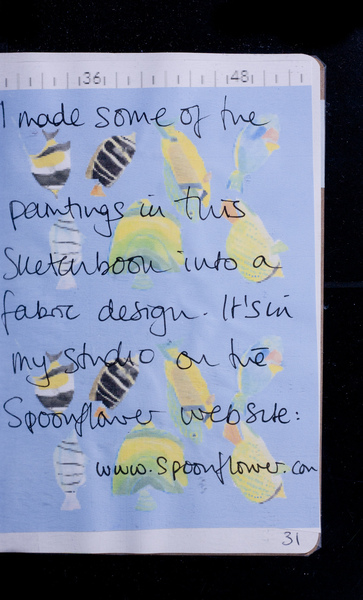 36 48
I made some of the
paintings in this
Sketchbook into a
fabric design. It's in
my studio on the
Spoonflower website:
www.spoonflower.com
31